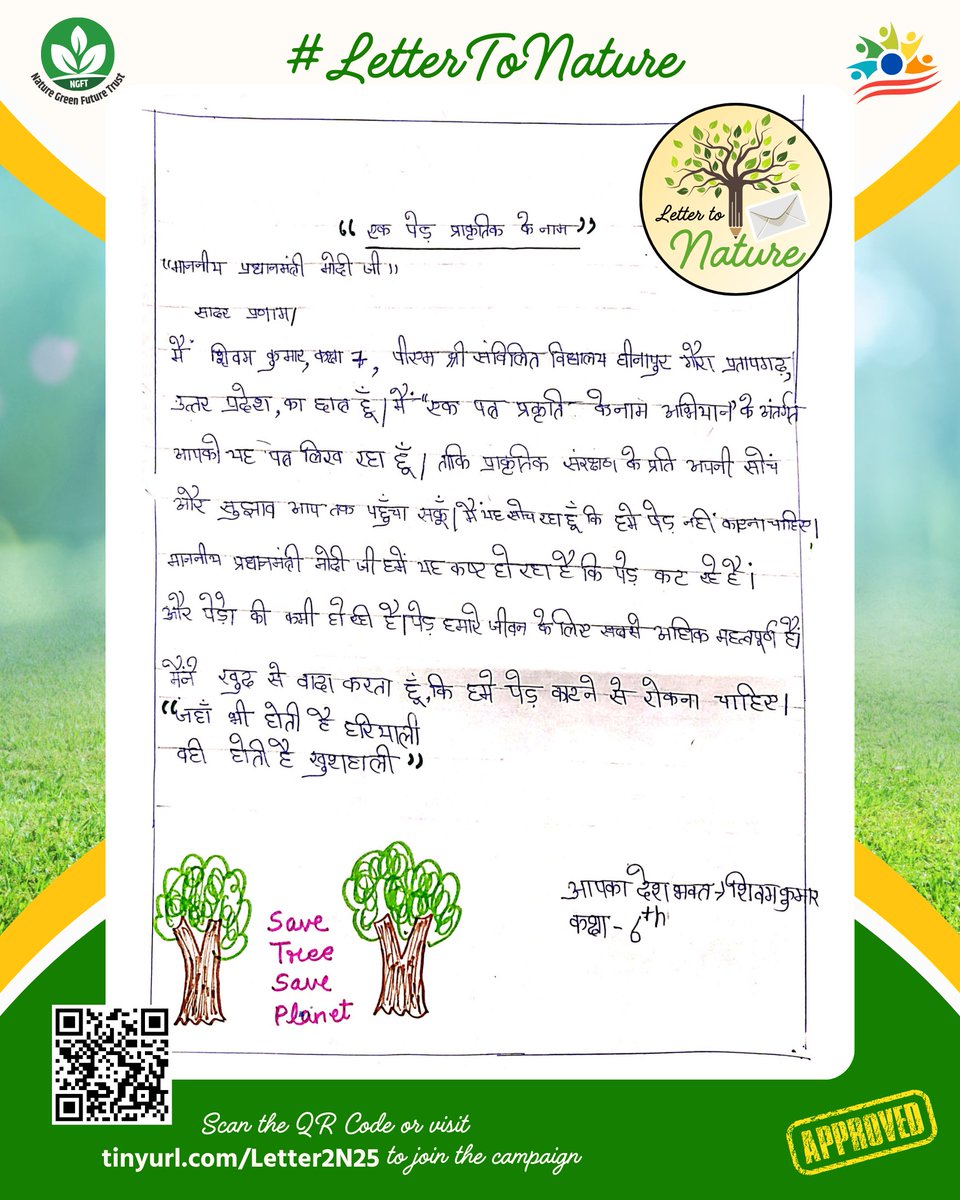 #LetterToNature
NGFT
Nature Green Future Trust
Letter to
Nature
“ एक पेड़ प्राकृतिक के नाम ”
"माननीय प्रधानमंत्री मोदी जी"
सादर प्रणाम/
मैं शिवम कुमार, कक्षा 7, पीएम श्री संविलित विद्यालय धीनापुर गौरा प्रतापगढ़,
उत्तर प्रदेश, का छात्र हूँ| मैं "एक पत्र प्रकृति के नाम अभियान" के अंतर्गत
आपको यह पत्र लिख रहा हूँ| ताकि प्राकृतिक संरक्षण के प्रति अपनी सोंच
और सुझाव आप तक पहुँचा सकूँ| मैं यह सोच रहा हूँ कि हमे पेड़ नहीं काटना चाहिए।
माननीय प्रधानमंत्री मोदी जी हमें यह कष्ट हो रहा है कि पेड़ कट रहे है।
और पेड़ो की कमी हो रही है। पेड़ हमारे जीवन के लिए सबसे अधिक महत्वपूर्ण है।
मैंने खुद से वादा करता हूँ, कि हमे पेड़ काटने से रोकना चाहिए।
“जहाँ भी होती है हरियाली
वही होती है खुशहाली ”
आपका देश भक्त → शिवम कुमार
कक्षा - 6th
Save
Tree
Save
Planet
Scan the QR Code or visit
tinyurl.com/Letter2N25 to join the campaign
APPROVED